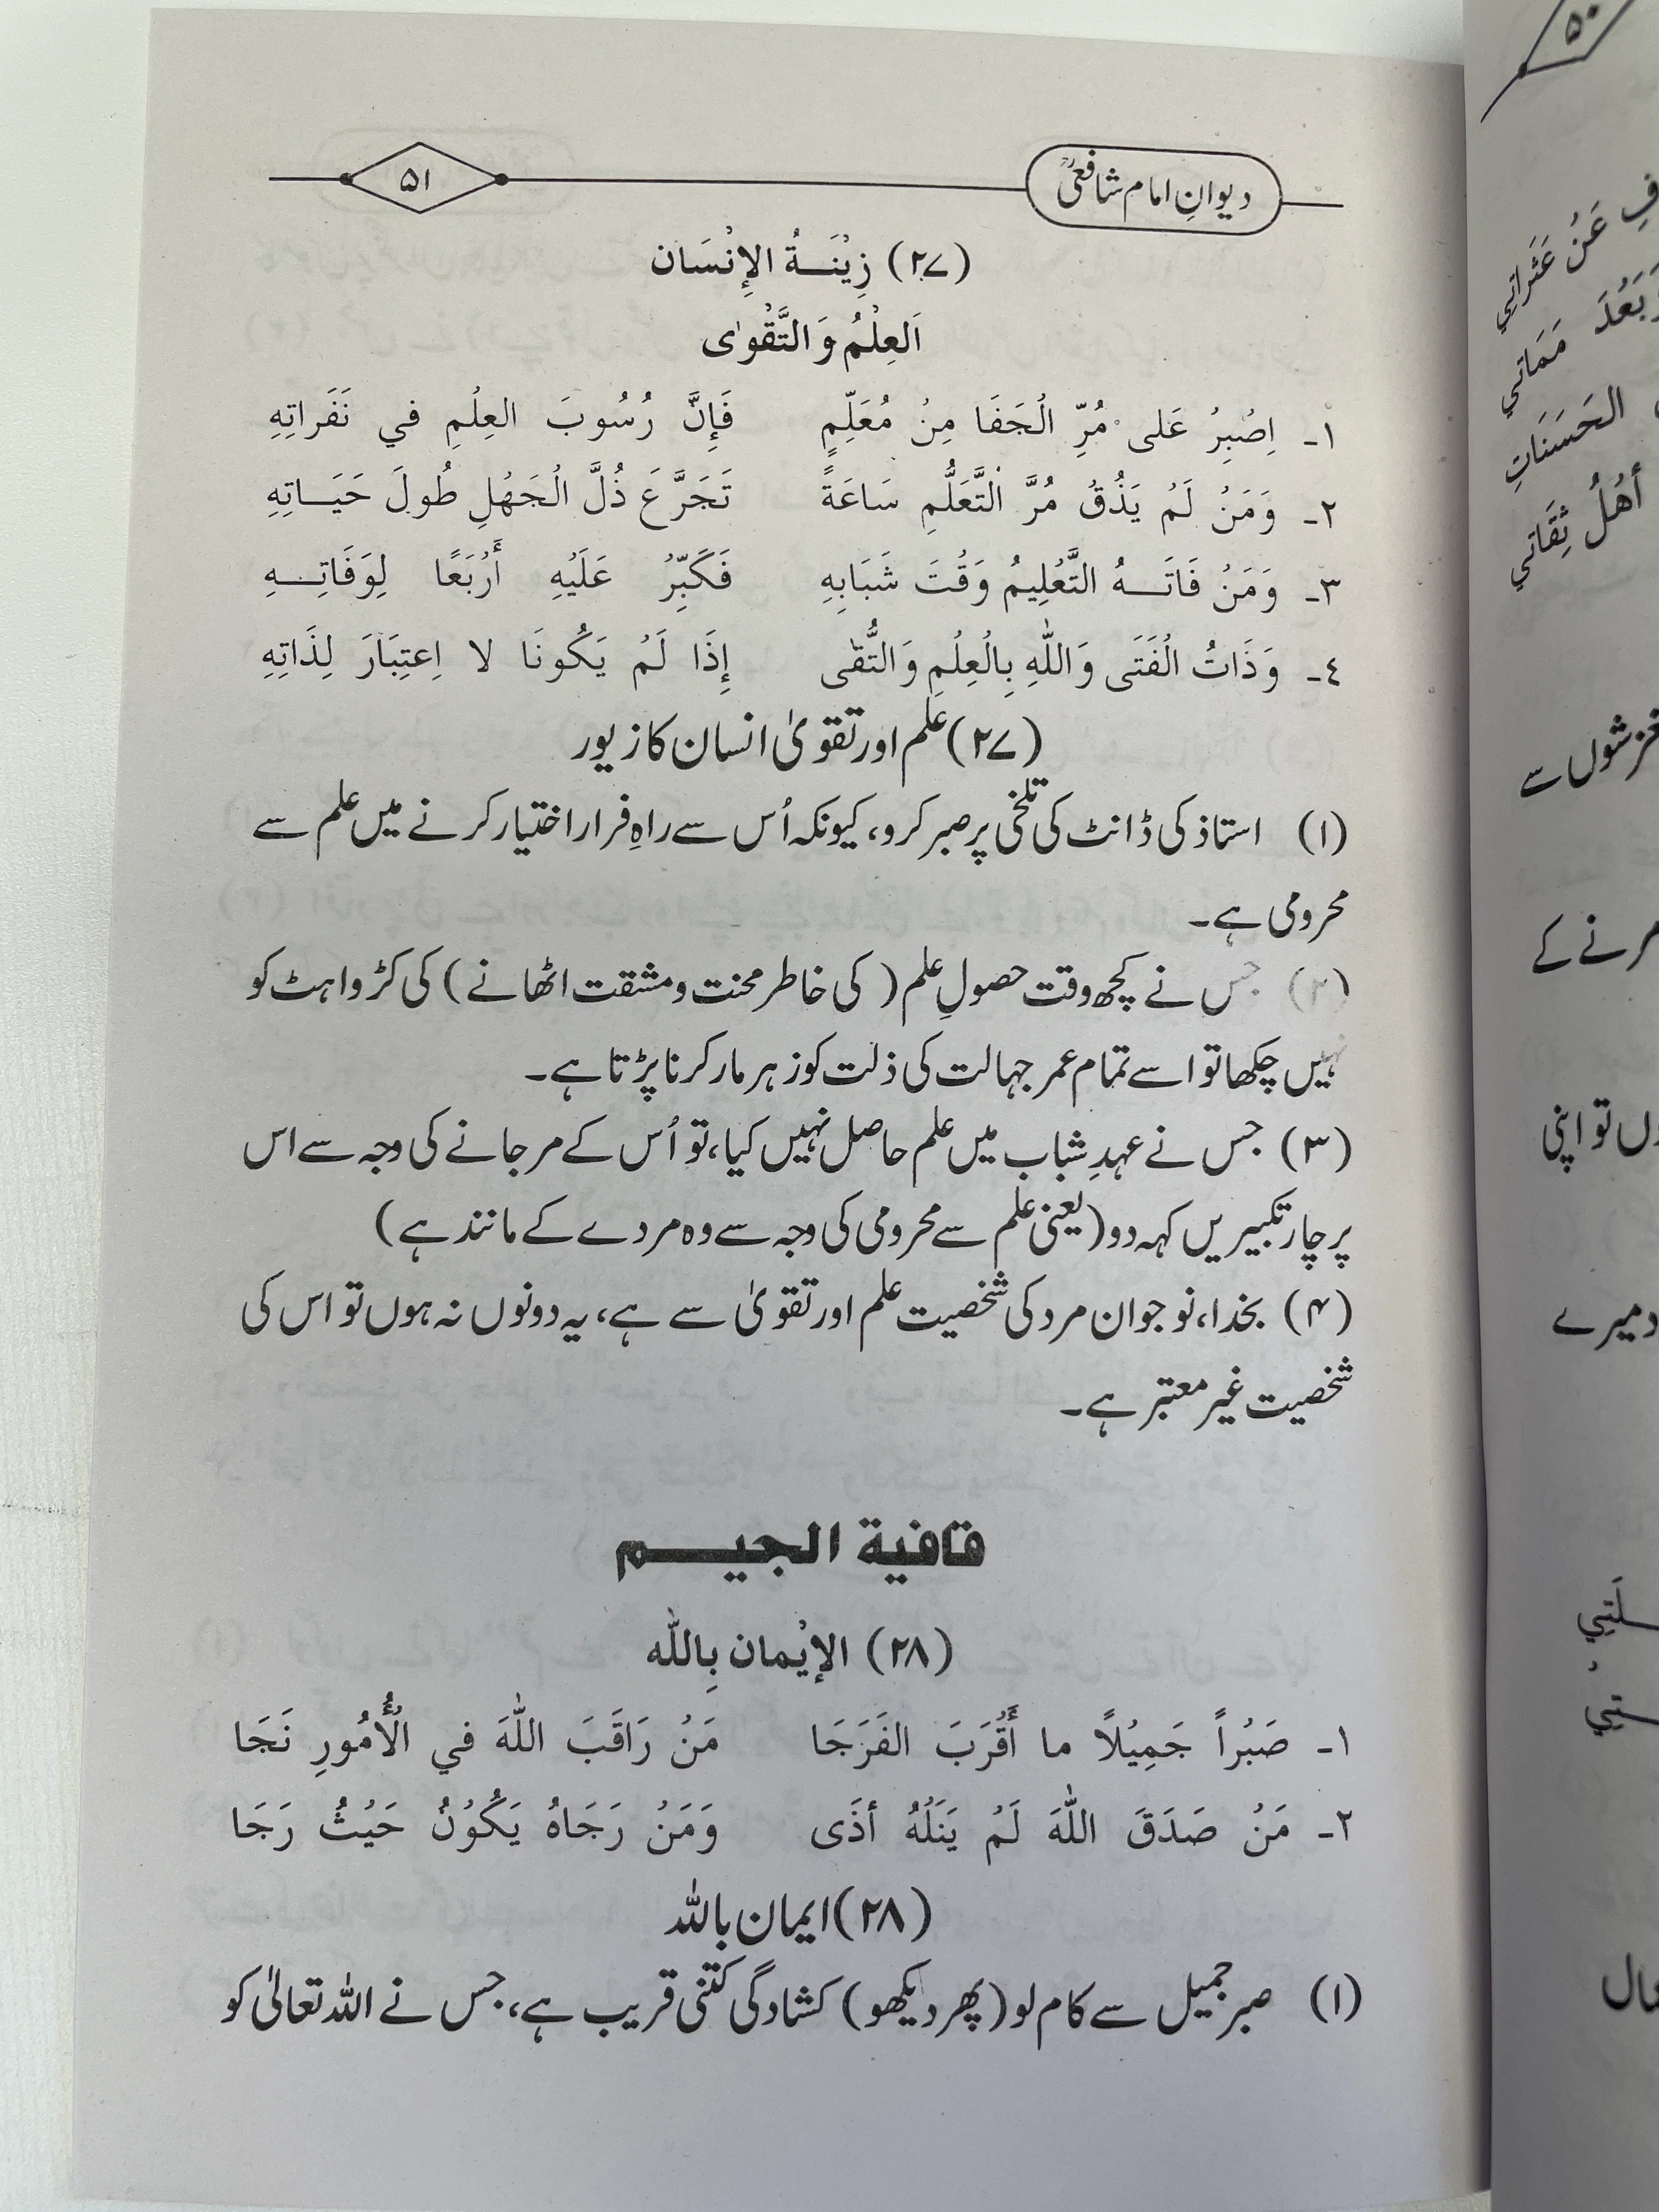 دیوانِ امام شافعیؒ
۵۱
(۲۷) زِيْنَـــةُ الإِنْسَان
اَلعِلْمُ وَالتَّقْوٰى
۱۔ اِصْبِرْ عَلى مُرِّ الْجَفَا مِنْ مُعَلِّمٍ فَإِنَّ رُسُوبَ العِلْمِ في نَفَراتِهِ
۲۔ وَمَنْ لَمْ يَذُقْ مُرَّ التَّعَلُّمِ سَاعَةً تَجَرَّعَ ذُلَّ الْجَهْلِ طُولَ حَيَـــاتِهِ
۳۔ وَمَنْ فَاتَـــهُ التَّعْلِيمُ وَقْتَ شَبَابِهِ فَكَبِّرْ عَلَيْهِ أَرْبَعًا لِوَفَاتِـــهِ
٤۔ وَذَاتُ الْفَتَى وَاللّٰهِ بِالْعِلْمِ وَالتُّقٰى إِذَا لَمْ يَكُونَا لا اِعتِبَارَ لِذَاتِهِ
(۲۷) علم اور تقویٰ انسان کا زیور
(۱) استاذ کی ڈانٹ کی تلخی پر صبر کرو، کیونکہ اُس سے راہِ فرار اختیار کرنے میں علم سے
محرومی ہے۔
(۲) جس نے کچھ وقت حصولِ علم (کی خاطر محنت و مشقت اٹھانے) کی کڑواہٹ کو
نہیں چکھا تو اسے تمام عمر جہالت کی ذلت کو زہر مار کرنا پڑتا ہے۔
(۳) جس نے عہدِ شباب میں علم حاصل نہیں کیا، تو اُس کے مر جانے کی وجہ سے اس
پر چار تکبیریں کہہ دو (یعنی علم سے محرومی کی وجہ سے وہ مردے کے مانند ہے)
(۴) بخدا، نوجوان مرد کی شخصیت علم اور تقویٰ سے ہے، یہ دونوں نہ ہوں تو اس کی
شخصیت غیر معتبر ہے۔
قافية الجيـــم
(۲۸) الإيْمان بِاللّٰه
۱۔ صَبْراً جَمِيْلاً ما أَقْرَبَ الفَرَجَا مَنْ رَاقَبَ اللّٰهَ في الْأُمُورِ نَجَا
۲۔ مَنْ صَدَقَ اللّٰهَ لَمْ يَنَلْهُ أذَى وَمَنْ رَجَاهُ يَكُوْنُ حَيْثُ رَجَا
(۲۸) ایمان باللہ
(۱) صبر جمیل سے کام لو (پھر دیکھو) کشادگی کتنی قریب ہے، جس نے اللہ تعالیٰ کو
۵۰
عَنْ عَثَراتِي
مَمَاتي
الحَسَنَاتِ
أَهْلُ ثِقَاتي
سے
کے
تو اپنی
میرے